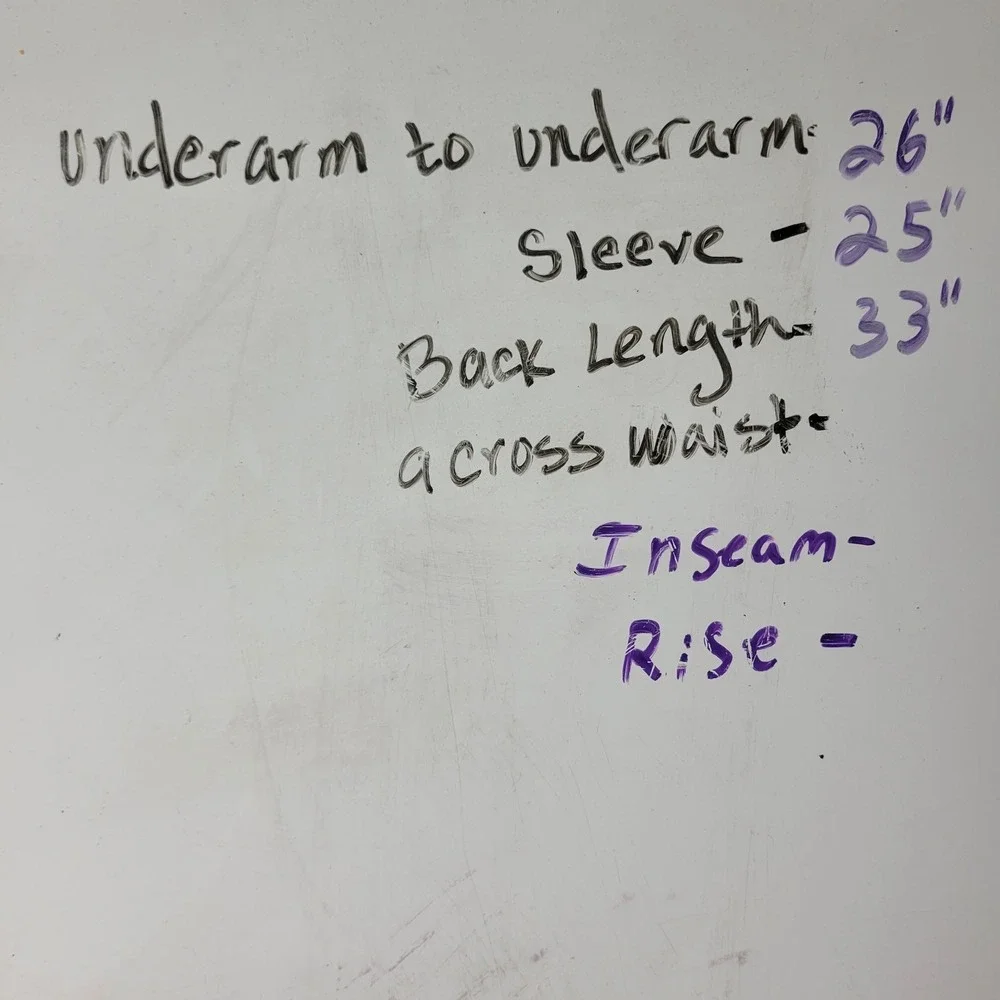 underarm to underarm- 26"
Sleeve - 25"
Back Length- 33"
across waist-
Inseam-
Rise -